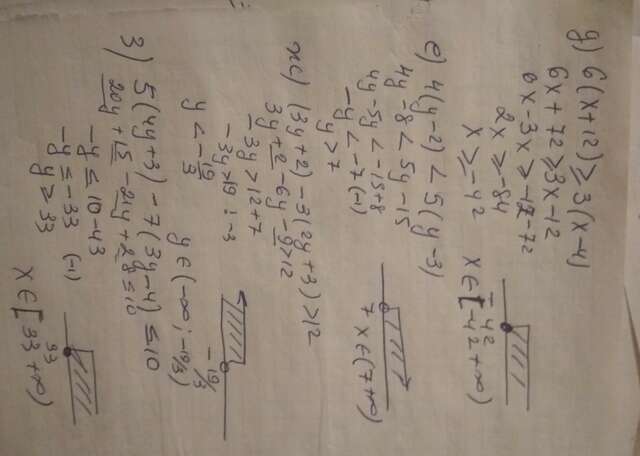 д) 6(x+12) ≥ 3(x-4)
6x + 72 ≥ 3x - 12
6x - 3x ≥ -12 - 72
2x ≥ -84
x ≥ -42
x ∈ [-42 +∞)
-42
е) 4(y-2) < 5(y-3)
4y - 8 < 5y - 15
4y - 5y < -15 + 8
-y < -7 (-1)
y > 7
7 x ∈ (7 +∞)
ж) (3y+2) - 3(2y+3) > 12
3y + 2 - 6y - 9 > 12
-3y > 12 + 7
-3y > 19 : -3
y < -19/3
y ∈ (-∞; -19/3)
-19/3
З) 5(4y+3) - 7(3y-4) ≤ 10
20y + 15 - 21y + 28 ≤ 10
-y ≤ 10 - 43
-y ≤ -33 (-1)
y ≥ 33
33
x ∈ [33 +∞)